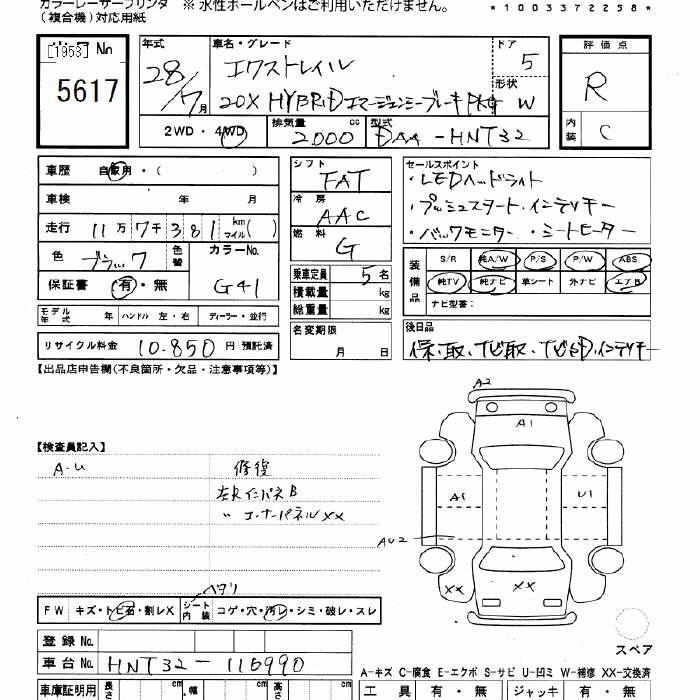 カラーレーザープリンタ ※ 水性ボールペンはご利用いただけません。
(複合機) 対応用紙
*1003372258*
[1953] No
5617
年式 車名・グレード ドア 評価点
28/7月 エクストレイル 5
20X HYBRID エマージェンシーブレーキPKG 形状 W
R
2WD・4WD 排気量 2000 cc 型式 DAA-HNT32
内装 C
車歴 自家用・( )
車検 年 月
走行 11万7千381 km マイル( )
色 ブラック 色替 カラーNo.
保証書 有・無 G41
モデル年式 年 ハンドル 左・右 ディーラー・並行
リサイクル料金 10.850 円 預託済
シフト FAT
冷房 AAC
燃料 G
乗車定員 5 名
積載量 kg
総重量 kg
名変期限
月 日
セールスポイント
・LEDヘッドライト
・プッシュスタート・インテリキー
・バックモニター ・シートヒーター
装備品 S/R 純A/W P/S P/W ABS
純TV 純ナビ 革シート 外ナビ エアB
ナビ型番:
後日品
保・取、ナビ取、ナビSD、インテリキー
【出品店申告欄(不良箇所・欠品・注意事項等)】
【検査員記入】
A-U 修復
右Rインパネ B
〃 コーナーパネル XX
A2
A1
A1
U1
AU2
XX
XX
スペア
ヘタリ
FW キズ・トビ石・割レX シート内装 コゲ・穴・汚レ・シミ・破レ・スレ
登録No.
車台No. HNT32-116990
A-キズ C-腐食 E-エクボ S-サビ U-凹ミ W-補修 XX-交換済
車庫証明用 長さ cm 幅 cm 高さ cm
工具 有・無 ジャッキ 有・無